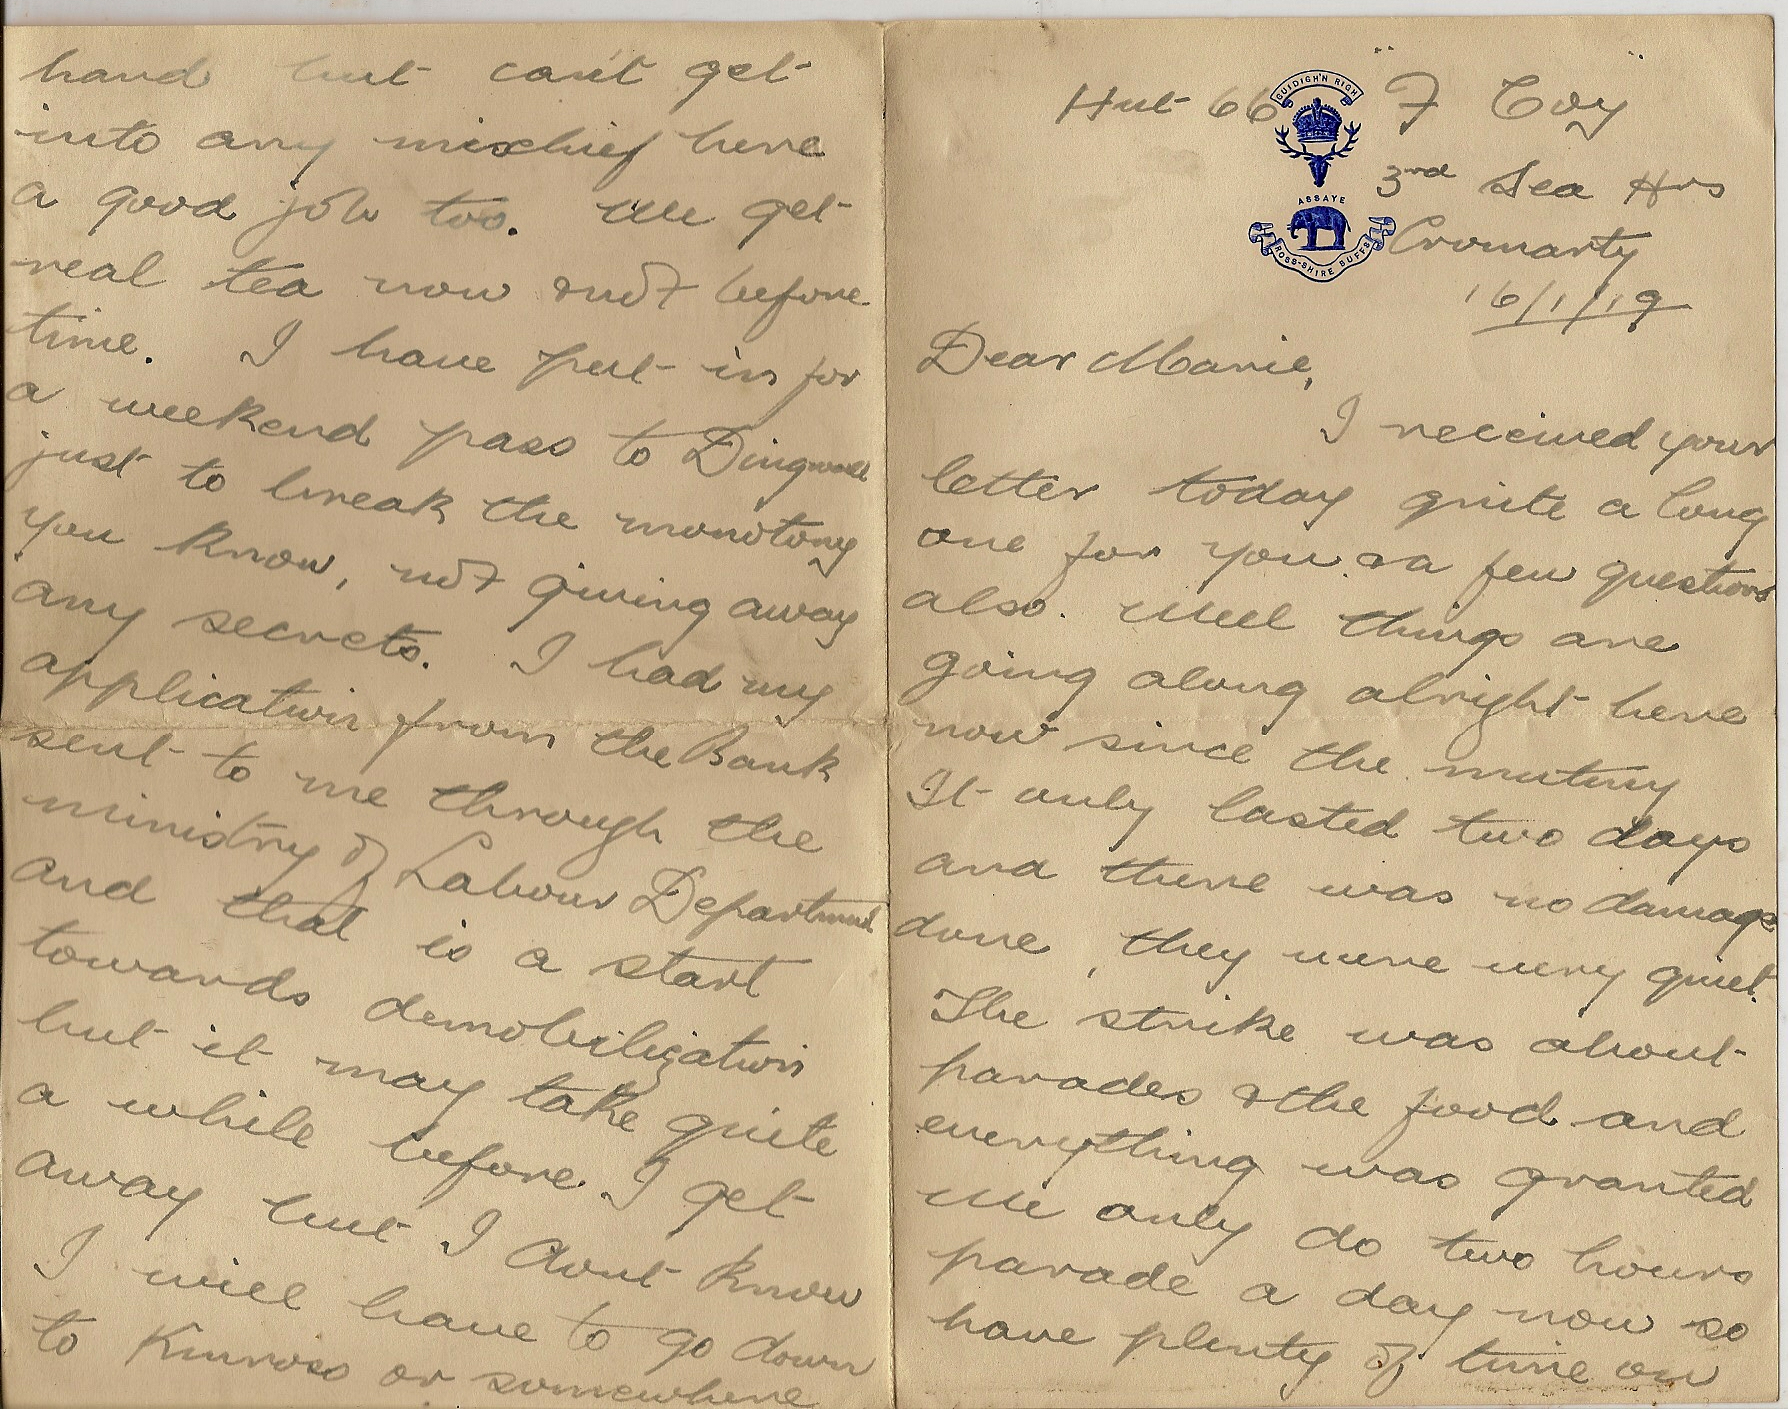 Hut 66 F Coy
CUIDIGH'N RIGH
3rd Sea Hrs
ASSAYE
Cromarty
ROSS-SHIRE BUFFS
16/1/19
Dear Marie,
I received your
letter today quite a long
one for you & a few questions
also. Well things are
going along alright here
now since the mutiny
It only lasted two days
and there was no damage
done, they were very quiet.
The strike was about
parades & the food and
everything was granted
We only do two hours
parade a day now so
have plenty of time on
hand but can't get
into any mischief here
a good job too. We get
real tea now & not before
time. I have put in for
a weekend pass to Dingwall
just to break the monotony
you know, not giving away
any secrets. I had my
application from the Bank
sent to me through the
ministry of Labour Department
and that is a start
towards demobilization
but it may take quite
a while before I get
away but I dont know
I will have to go down
to Kinross or somewhere